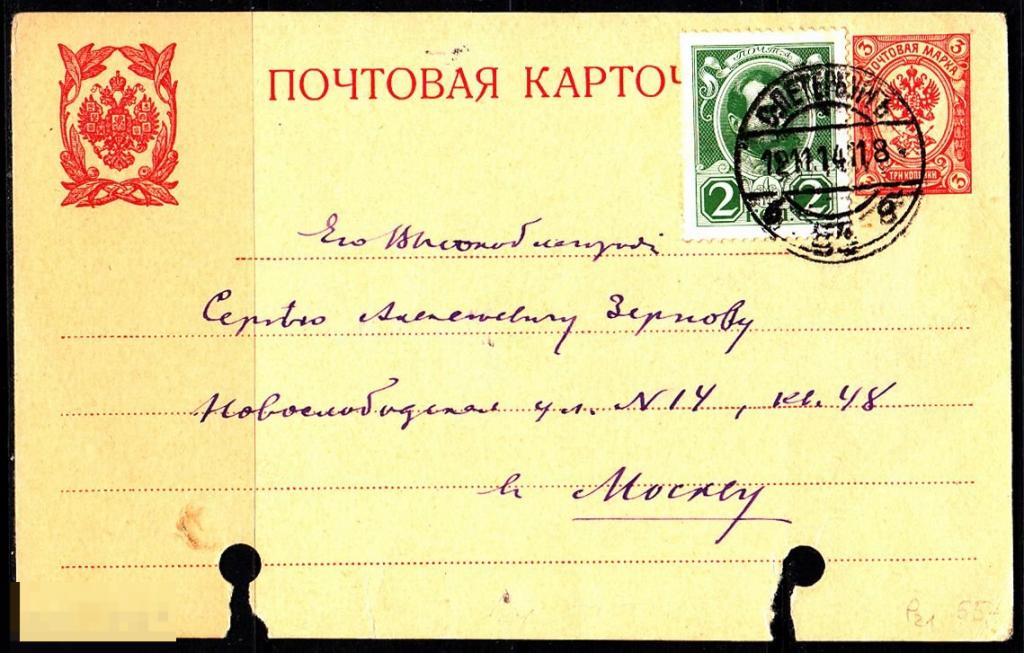 ПОЧТОВАЯ КАРТОЧ
ПОЧТА
2 2
3 3
ПОЧТОВАЯ МАРКА
ТРИ КОПЕЙКИ
3 3
С.ПЕТЕРБУРГЪ
12.11.14 18
8
Его Высокоблагородiю
Сергѣю Алексеевичу Зернову
Новослободская ул. N 14, кв. 48
въ Москву